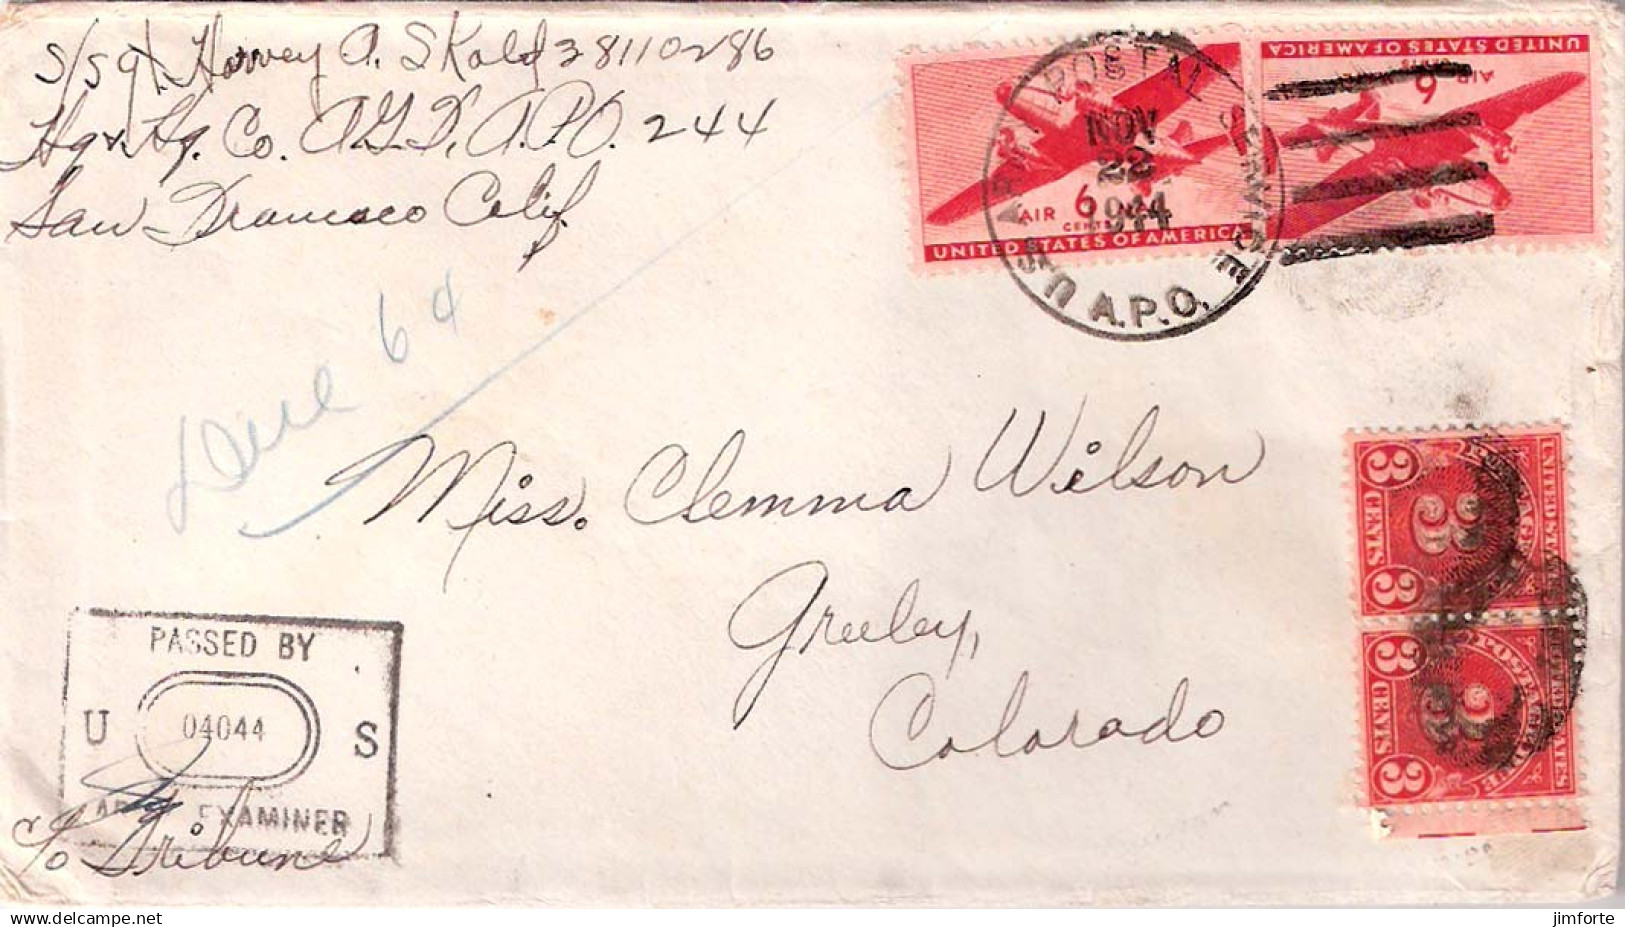 S/Sgt. Harvey A. Skold 38110286
Hq & Hq. Co. A.G.F, A.P.O. 244
San Francisco Calif.
AIR 6 CENTS
UNITED STATES OF AMERICA
UNITED STATES OF AMERICA
6 CENTS AIR
U.S. ARMY POSTAL SERVICE
NOV
22
1944
A.P.O.
Due 6¢
Miss. Clemma Wilson
Greeley,
Colorado
3 CENTS 3
3 CENTS 3
PASSED BY
U 04044 S
ARMY EXAMINER
c/o Tribune
jimforte